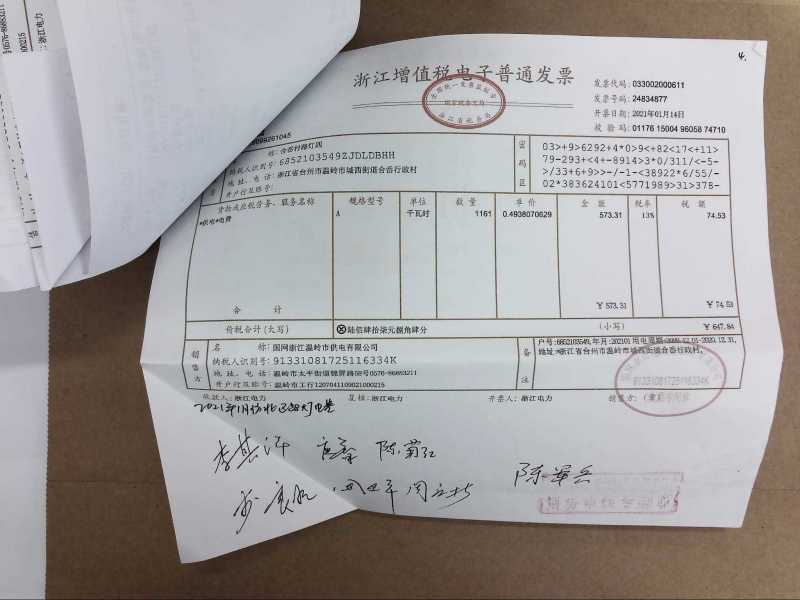 4.
浙江增值税电子普通发票
全国统一发票监制章
国家税务总局
浙江省税务局
发票代码: 033002000611
发票号码: 24834877
开票日期: 2021年01月14日
校 验 码: 01176 15004 96058 74710
名 称: 合岙村路灯四
纳税人识别号: 6852103549ZJDLDBHH
地 址、电 话: 浙江省台州市温岭市城西街道合岙行政村
开户行及账号:
密码区
03>+9>6292+4*0>9<+82<17<+11>
79-293+<4+-8914>3*0/311/<-5-
>/33+6+9>>-/-1-<38922*6/55/-
02*383624101<5771989>31>378-
货物或应税劳务、服务名称 规格型号 单位 数 量 单 价 金 额 税率 税 额
*供电*电费 A 千瓦时 1161 0.4938070629 573.31 13% 74.53
合 计 ￥573.31 ￥74.53
价税合计(大写) ⊗陆佰肆拾柒元捌角肆分 (小写) ￥647.84
销售方
名 称: 国网浙江温岭市供电有限公司
纳税人识别号: 91331081725116334K
地 址、电 话: 温岭市太平街道锦屏路58号0576-86683211
开户行及账号: 温岭市工行1207041109021000215
备注
户号:6852103549,年月:202101用电周期:2020.12.01-2020.12.31,
地址:浙江省台州市温岭市城西街道合岙行政村。
91331081725116334K
收款人: 浙江电力 复核: 浙江电力 开票人: 浙江电力 销售方:(章)
陈菊红
0576-86683211
:浙江电力